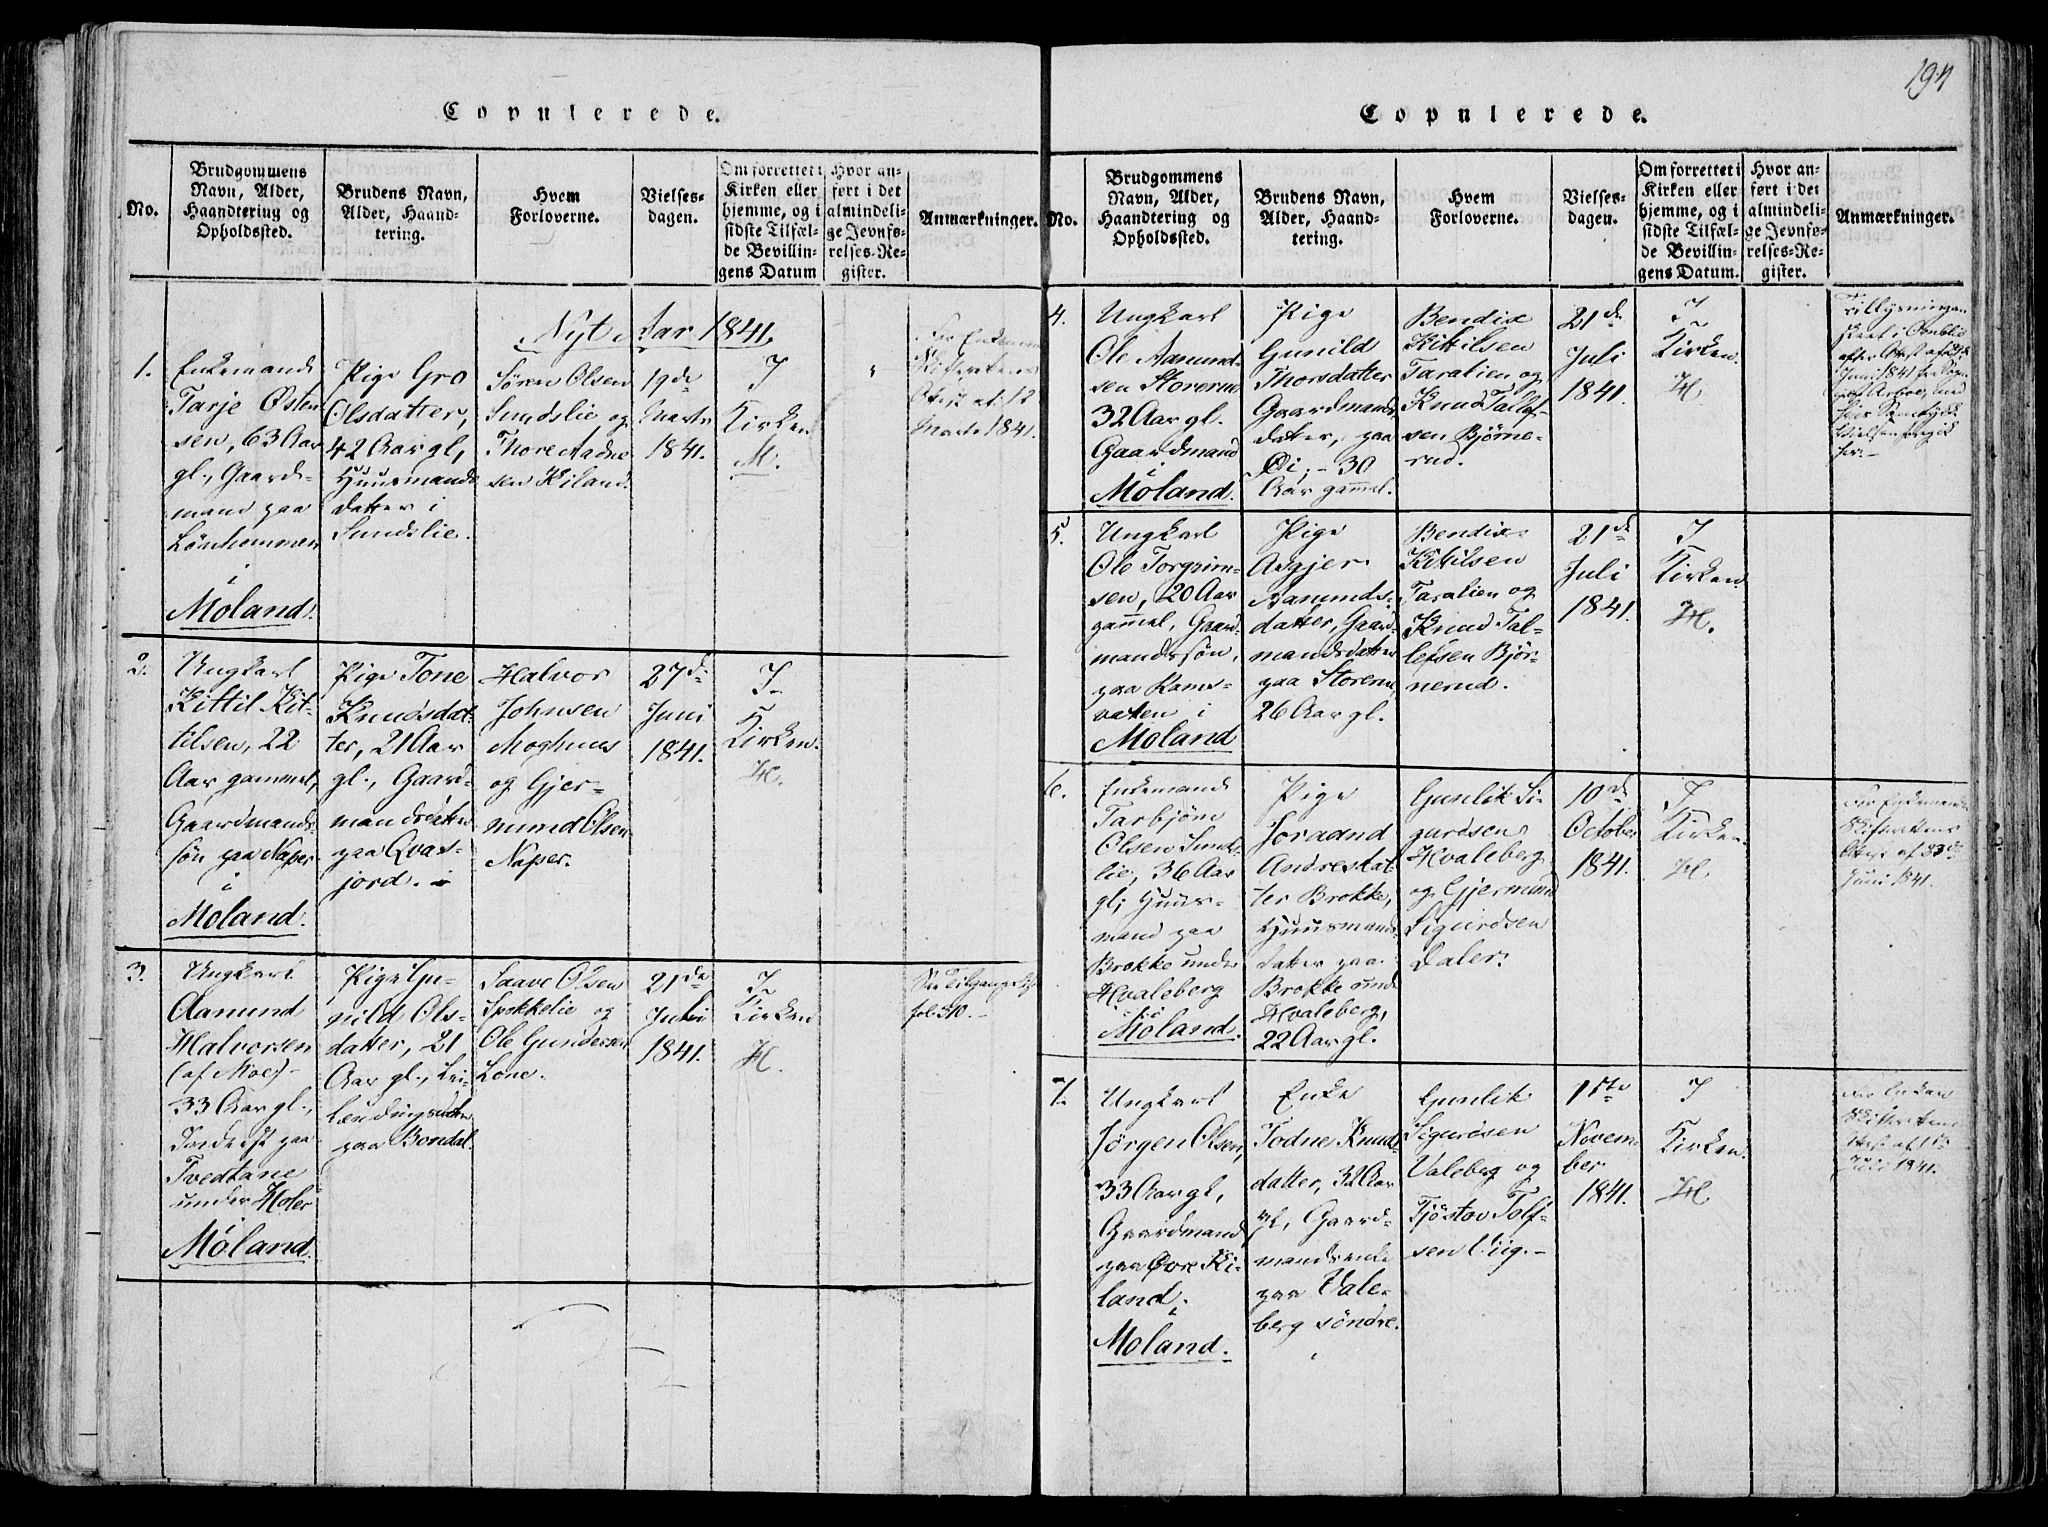 194
Copulerede.
No.
Brudgommens
Navn, Alder,
Haandtering og
Opholdssted.
Brudens Navn,
Alder, Haand-
tering.
Hvem
Forloverne.
Vielses-
dagen.
Om forrettet i
Kirken eller
hjemme, og i
sidste Tilfæl-
de Bevillin-
gens Datum
Hvor an-
ført i det
almindeli-
ge Jevnfø-
relses-Re-
gister.
Anmærkninger.
Nyt Aar 1841.
1.
Enkemand
Tarje Østen-
sen, 63 Aar
gl., Gaard-
mand paa
i
Moland.
Pige Gro
Olsdatter,
42 Aar gl,
Huusmands
datter i
Sundslie.
Søren Olsen
Sundslie og
Thore Aadne
sen Kiland.
19de
Marts
1841.
I
Kirken
M.
For Enkemand
Skifterettens
Attest af 12
Marts 1841.
2.
Ungkarl
Kittil Kit-
tilsen, 22
Aar gammel,
Gaardmands-
søn paa Naper
i
Moland.
Pige Tone
Knudsdat-
ter, 21 Aar
gl., Gaard-
mandsdatter
paa Qvas-
jord.
Halvor
Johnsen
Moghuus
og Gjer-
mund Olsen
Naper.
27de
Juni
1841.
I
Kirken.
H.
3.
Ungkarl
Aamund
Halvorsen
(af Moe)-
33 Aar gl.,
paa
Tvedtane
under Holer
i
Moland.
Pige Gu-
nild Ols-
datter, 21
Aar gl., Lei-
lændingsdatter
paa Bondal.
Saave Olsen
Spokkelie og
Ole Gundersen
Lone.
21de
Juli
1841.
I
Kirken
H.
fol. 310.-
Copulerede.
No.
Brudgommens
Navn, Alder,
Haandtering og
Opholdssted.
Brudens Navn,
Alder, Haand-
tering.
Hvem
Forloverne.
Vielses-
dagen.
Om forrettet i
Kirken eller
hjemme, og i
sidste Tilfæl-
de Bevillin-
gens Datum.
Hvor an-
ført i det
almindeli-
ge Jevnfø-
relses-Re-
gister.
Anmærkninger.
4.
Ungkarl
Ole Aamund-
sen Storerud
32 Aar gl.
Gaardmand
i
Moland.
Pige
Gunild
Thorsdatter
Gaardmands
datter, paa
Øi, - 30
Aar gammel.
Bendix
Kittilsen
Taralien og
Knud Tallef-
sen Bjørne-
rud.
21de
Juli
1841.
I
Kirken.
H.
Tillysningen
skeet i
efter Attest af
Juni 1841 fra
5.
Ungkarl
Ole Torgrim-
sen, 20 Aar
gammel, Gaard-
mandssøn,
paa Rams-
vatten i
Moland
Pige
Asgjer
Aamunds-
datter, Gaard-
mandsdatter
paa Storerud,
26 Aar gl.
Bendix
Kittilsen
Taralien og
Knud Tal-
lefsen Bjør-
nerud.
21de
Juli
1841.
I
Kirken.
H.
6.
Enkemand
Tarbjørn
Olsen Sunds-
lie, 36 Aar
gl; Huus-
mand paa
Brokke under
Hvaleberg
i
Moland.
Pige
Joraand
Andresdat-
ter Brokke,
Huusmands-
datter paa
Brokke under
Hvaleberg,
22 Aar gl.
Gunlik Si-
gurdsen
Hvaleberg
og Gjermund
Sigurdsen
Daler.
10de
October
1841.
I
Kirken.
H
For Enkemand
Skifterettens
Attest af 23de
Juni 1841.
7.
Ungkarl
Jørgen Olsen,
33 Aar gl,
Gaardmand
paa Øvre Ki-
land,
i
Moland.
Enke
Todne Knuds-
datter, 32 Aar
gl, Gaard-
mandsenke
paa Vale-
berg søndre.
Gunlik
Sigurdsen
Valeberg og
Tjøstov Tolf-
sen Viig.-
1ste
Novem-
ber
1841.
I
Kirken.
H
For Enken
Skifterettens
Attest af 1de
Juli 1841.